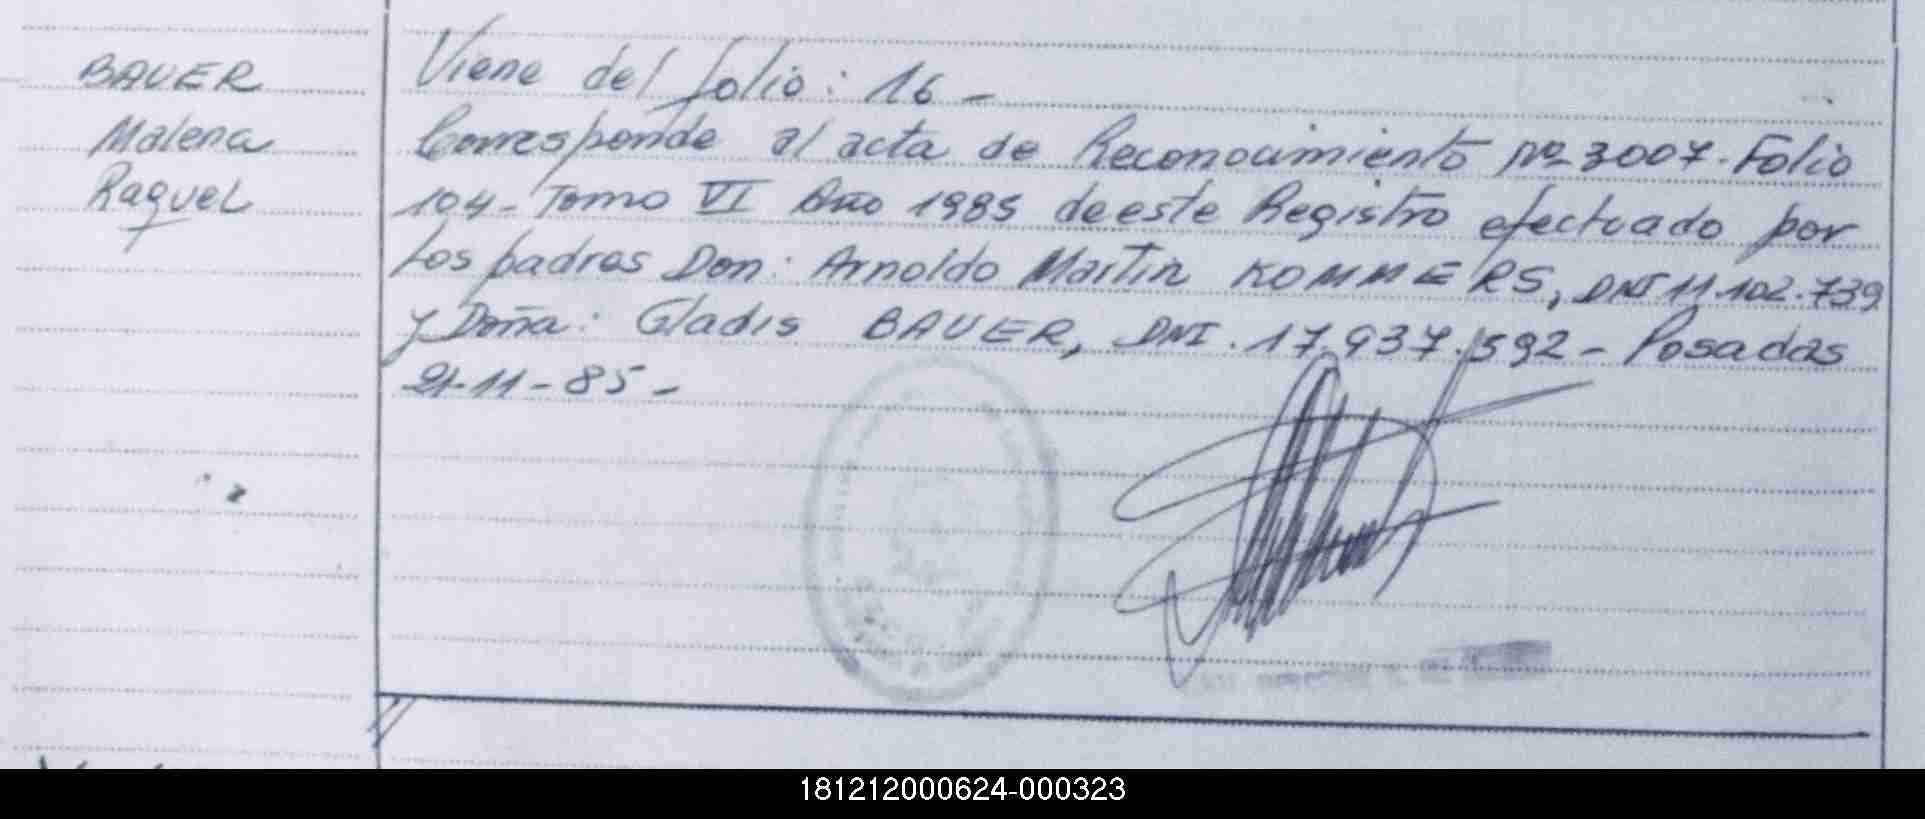 BAUER
Malena
Raquel
Viene del folio: 16 -
Corresponde al acta de Reconocimiento Nº 3007. Folio
104 - Tomo VI Año 1985 de este Registro efectuado por
los padres Don: Arnoldo Martin KOMMERS, DNI 11.102.739
y Doña: Gladis BAUER, DNI. 17.937.592 - Posadas
21-11-85 -
181212000624-000323